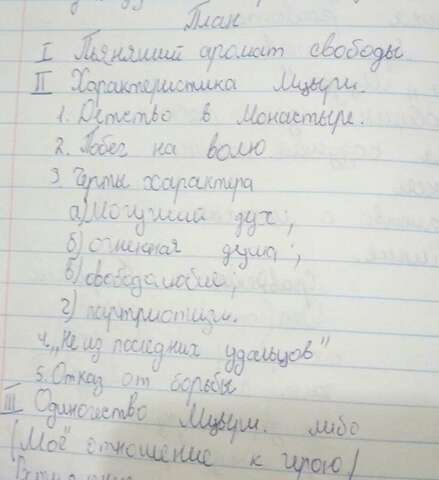 План
I Пьянящий аромат свободы
II Характеристика Мцыри.
1. Детство в Монастыре.
2. Побег на волю
3. Черты характера
а) Могучий дух;
б) огненная душа;
в) свободолюбие;
г) патриотизм.
4. „Не из последних удальцов"
5. Отказ от борьбы
III Одиночество Мцыри. либо
(Моё отношение к герою)